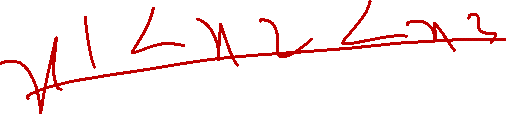 n1 < n2 < n3